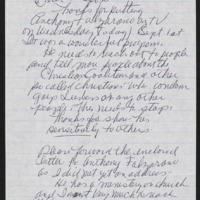 Thanks for putting
Anthony Falzarano on TV
on Wednesday (today) Sept 1st
It was a wonderful program.
He needs to reach out to people
and tell more people about the
Christian Coalition and other
so called christians who condem
Gays Lesbians or any other
people. This needs to stop
Thanks for show his
sensitivity to others.
Please forward the enclosed
letter to Anthony Falzarano
as I did not get an address
He has a ministry or church
and I want very much to reach